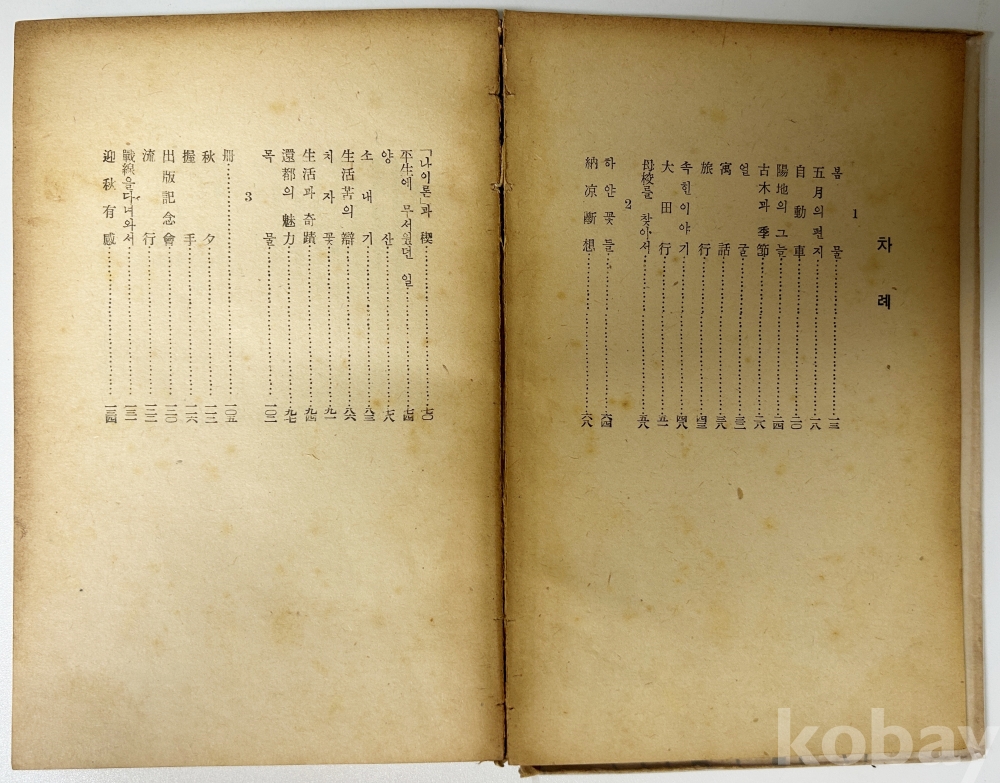 차례
1
봄물……一三
五月의 편지……一八
自動車……二〇
陽地의 그늘……二四
古木과 季節……二六
얼굴……三二
寓話……三八
旅行……四三
속힌 이야기……四八
大田行……五一
母校를 찾아서……五八
2
하얀 꽃들……六四
納凉斷想……六八
「나이론」과 稧……七〇
平生에 무서웠던 일……七四
양산……七八
소내기……八三
生活苦의 辯……八六
치자꽃……九一
生活과 奇蹟……九四
還都의 魅力……九七
목물……一〇二
3
册……一〇五
秋夕……一一三
握手……一一六
出版記念會……一二〇
流行……一二二
戰線을 다녀와서……一三一
迎秋有感……一三四
kobay